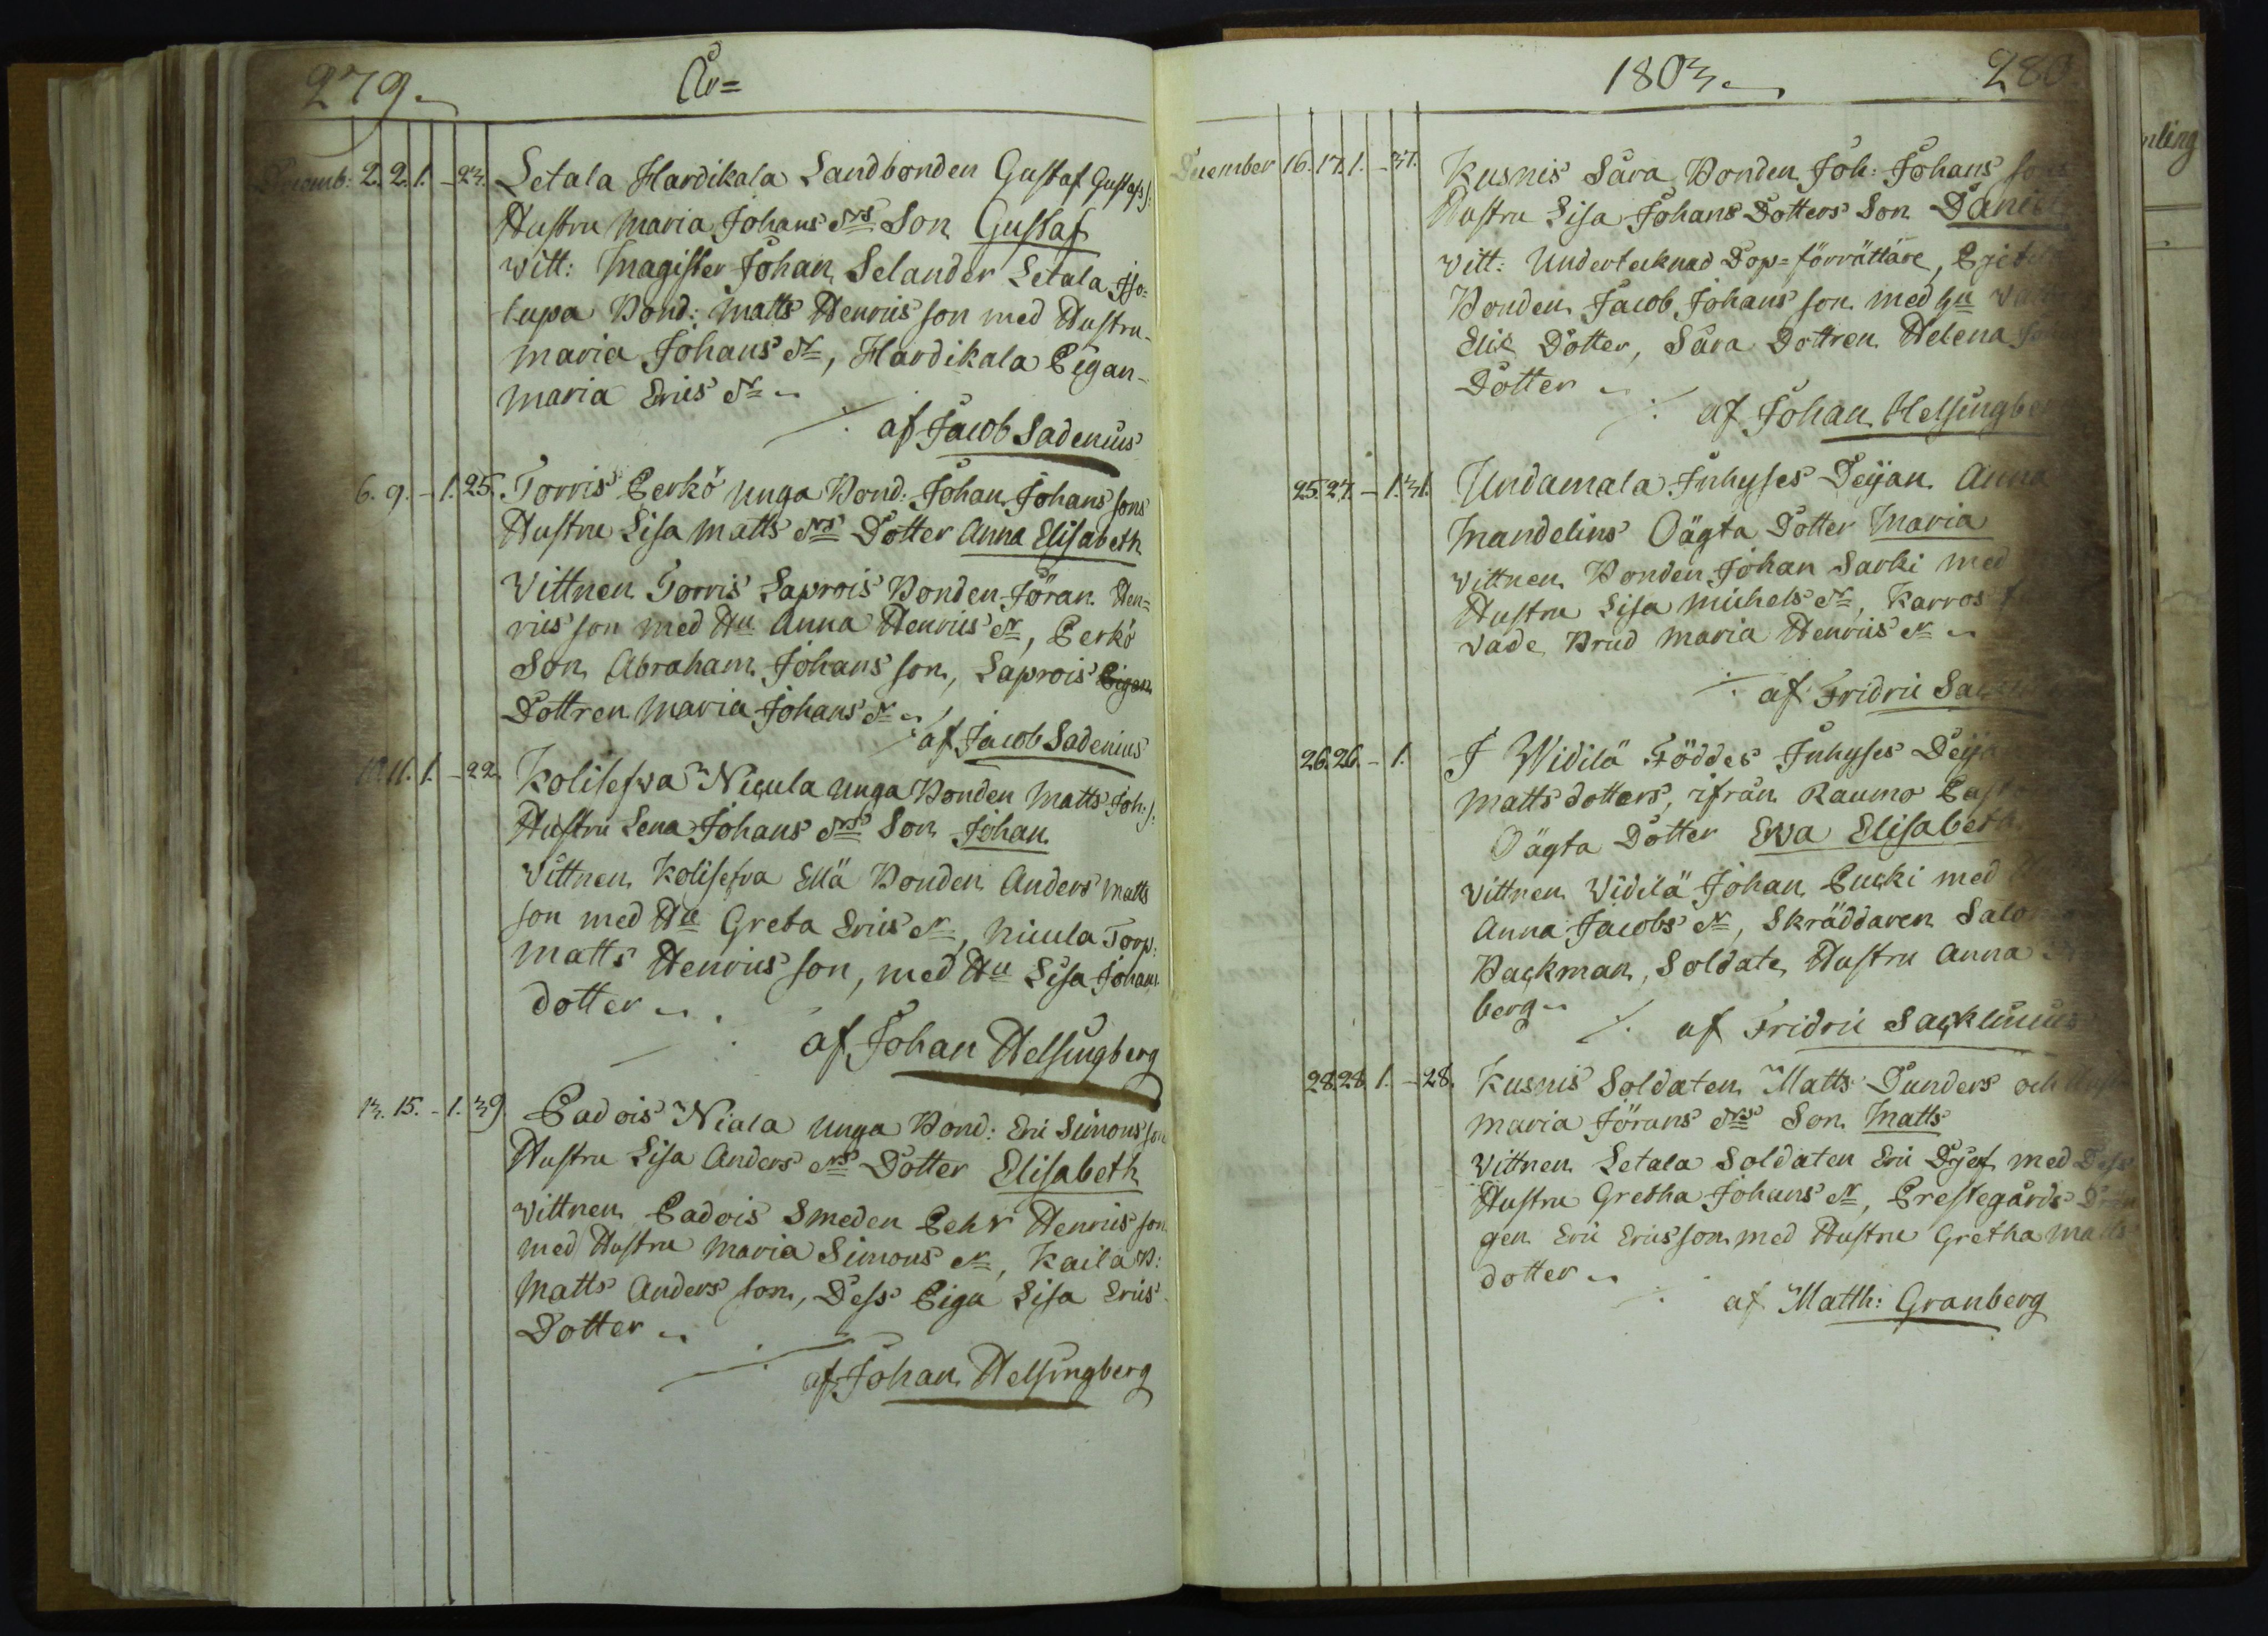 279.
År=
Decemb: 2. 2. 1. - 23. Letala Hardikala Landbonden Gustaf Gustafs s:
Hustru Maria Johans drs Son Gustaf
witt: Magister Johan Selander Letala Iso-
lupa Bond: Matts Henrics son med Hustru
Maria Johans dr, Hardikala Pigan
Maria Erics dr
af Jacob Sadenius
6. 9. - 1. 25. Torris Perkö Unga Bond: Johan Johans sons
Hustru Lisa Matts drs Dotter Anna Elisabeth
Vittnen Torris Laprois Bonden Jöran Hen=
rics son med Hu Anna Henrics dr, Perkö
Son Abraham Johans son, Laprois Pigan
Dottren Maria Johans dr
af Jacob Sadenius
11. 1. - 22. Kolisefva Nicula Unga Bonden Matts Joh: s:
Hustru Lena Johans drs Son Johan
Vittnen Kolisefva Ellä Bonden Anders Matts
son med Hu Greta Erics dr, Nicula Torp:
Matts Henrics son, med Hu Lisa Johans
dotter
af Johan Helsingberg
13. 15. - 1. 39. Padois Niala Unga Bond: Eric Simons son
Hustru Lisa Anders drs Dotter Elisabeth
Vittnen Padois Smeden Pehr Henrics son
med Hustru Maria Simons dr, Kaila B:
Matts Anders son, Dess Piga Lisa Erics
Dotter
af Johan Helsingberg
1803
280
December 16. 17. 1. - 37. Kusnis Sara Bonden Joh: Johans sons
Hustru Lisa Johans Dotters Son Daniel
Vitt: Undertecknad Dop=förrättare,
Bonden Jacob Johans son med hu
Elis Dotter, Sara Dottren Helena
Dotter
af Johan Helsingberg
25. 27. - 1. 31. Undamala Inhyses Deijan Anna
Mandelins Oägta Dotter Maria
Vittnen Bonden Johan Sarki med
Hustru Lisa Michels dr, Karros
vade Brud Maria Henrics dr
af Fridric
26. 26. - 1. I Widilä Föddes Inhyses
Matts dotters, ifrån Raumo
Oägta Dotter Ewa Elisabeth
Vittnen Vidilä Johan Pucki med
Anna Jacobs dr, Skräddaren
Backman, Soldate Hustru Anna
berg
af Fridric Sacklinius
28. 28. 1. - 28. Kusnis Soldaten Matts Dunders och
Maria Jörans drs Son Matts
Vittnen Letala Soldaten Eric Djerf med Dess
Hustru Gretha Johans dr, Prestegårds Drän
gen Eric Ericsson med Hustru Gretha Matts
dotter
af Matth: Granberg